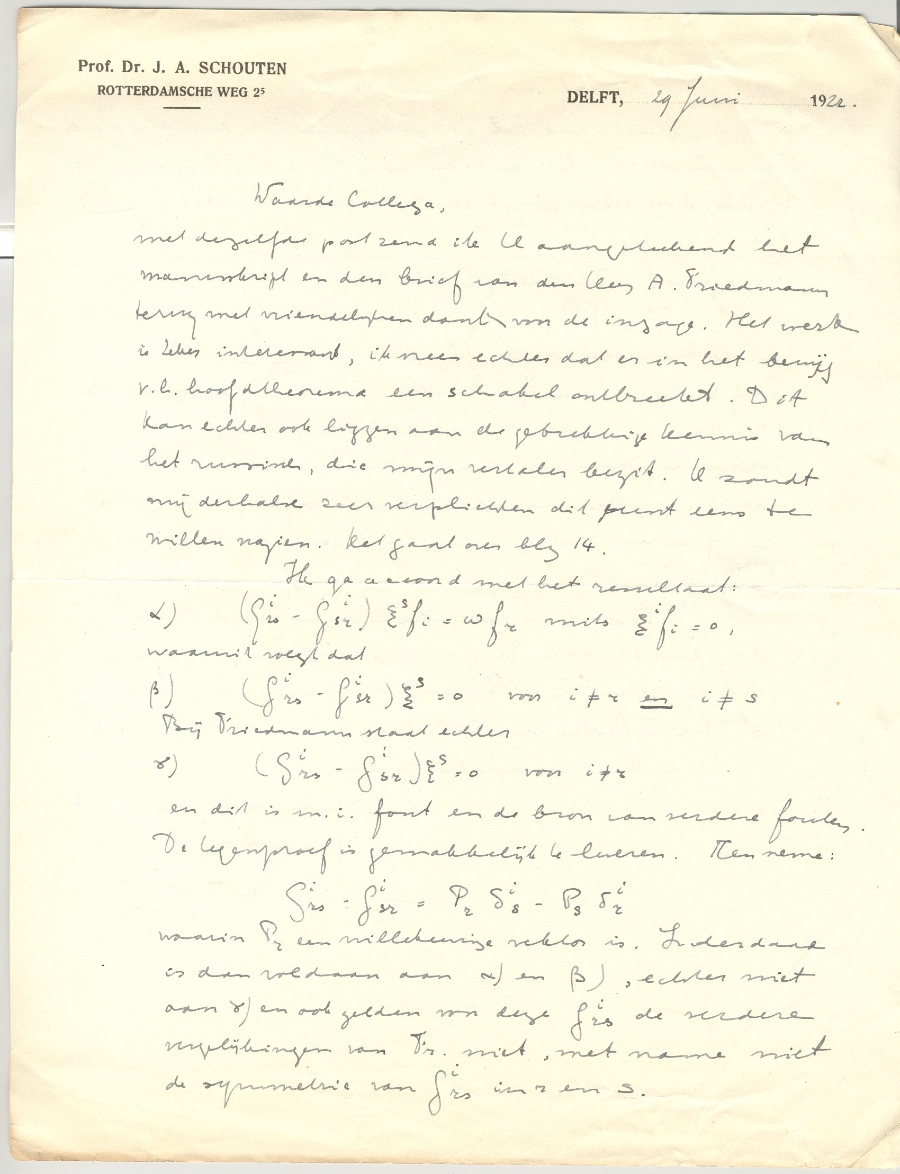 Prof. Dr. J. A. SCHOUTEN
ROTTERDAMSCHE WEG 2⁵
DELFT, 29 Juni 1922.
Waarde Collega,
met dezelfde post zend ik U aangeteekend het
manuskript en den brief van den Heer A. Friedmann
terug met vriendelijken dank voor de inzage. Het werk
is zeker interessant, ik vrees echter dat er in het bewijs
v.h. hoofdtheorema een schakel ontbreekt. Dit
kan echter ook liggen aan de gebrekkige kennis van
het russisch, die mijn vertaler bezit. U zoudt
mij derhalve zeer verplichten dit punt eens te
willen nazien. Het gaat over blz 14.
Ik ga accoord met het resultaat:
α) (Γⁱrs - Γⁱsr) ξˢfi = ω fr mits ξⁱfi = 0,
waaruit volgt dat
β) (Γⁱrs - Γⁱsr) ξˢ = 0 voor i ≠ r en i ≠ s
Bij Friedmann staat echter
γ) (Γⁱrs - Γⁱsr) ξˢ = 0 voor i ≠ r
en dit is m.i. fout en de bron van verdere fouten.
De tegenproef is gemakkelijk te leveren. Men neme:
Γⁱrs - Γⁱsr = Pr δⁱs - Ps δⁱr
waarin Pr een willekeurige vektor is. Inderdaad
is dan voldaan aan α) en β), echter niet
aan γ) en ook gelden voor deze Γⁱrs de verdere
vergelijkingen van Fr. niet, met name niet
de symmetrie van Γⁱrs in r en s.